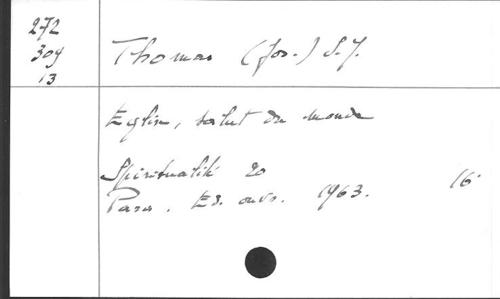 272
309
13
Thomas (Jos.) S.J.
Eglise, salut du monde
Spiritualité 20
Paris. Ed. ouvr. 1963. 16°